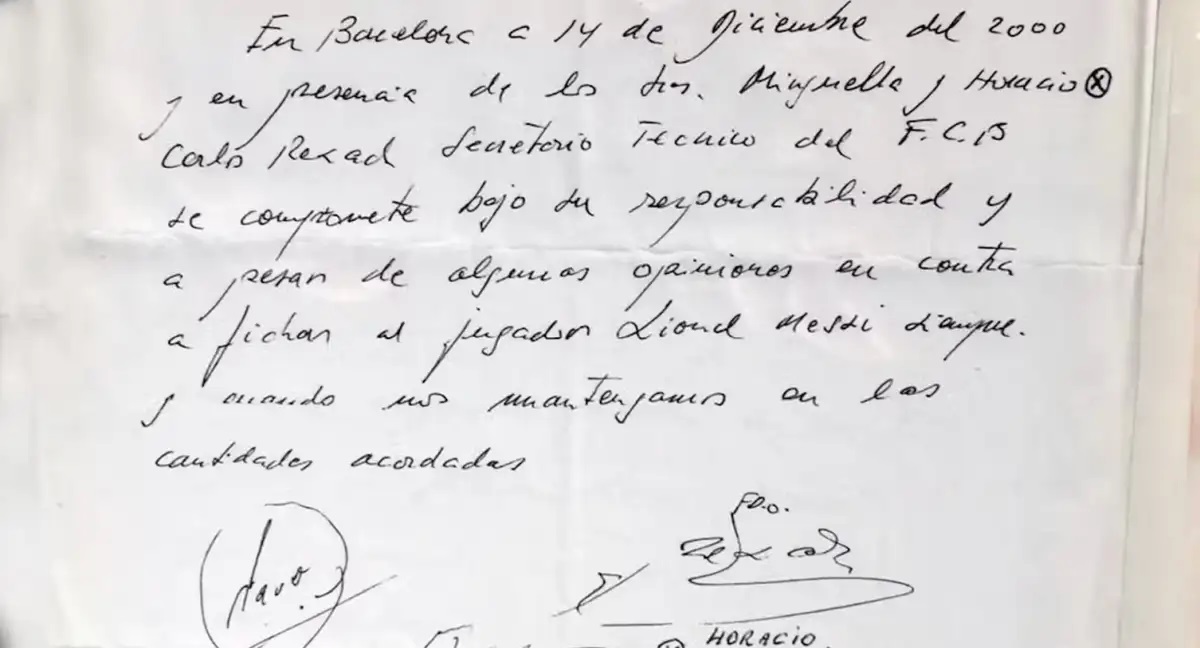 En Barcelona a 14 de Diciembre del 2000
y en presencia de los Srs. Minguella y Horacio
Carlos Rexach Secretario Tecnico del F.C.B
se compromete bajo su responsabilidad y
a pesar de algunas opiniones en contra
a fichar al jugador Lionel Messi siempre.
y cuando nos mantengamos en las
cantidades acordadas
FDO.
HORACIO